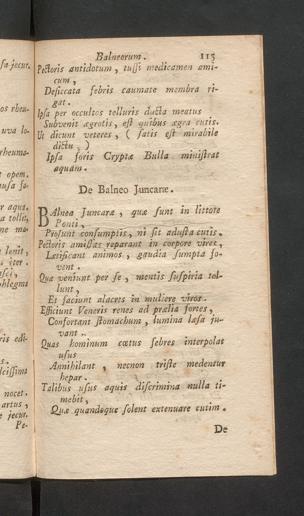 Balneorum. 115
Pectoris antidotum, tussi medicamen ami-
cum,
Desiccata febris caumate membra ri-
gat.
Ipsa per occultos telluris ducta meatus
Subvenit ægrotis, est quibus ægra cutis.
Ut dicunt veteres, ( satis est mirabile
dictu, )
Ipsa foris Cryptæ Bulla ministrat
aquam.
De Balneo Juncaræ.
BAlnea Juncaræ, quæ sunt in littore
Ponti,
Prosunt consumptis, ni sit adusta cutis.
Pectoris amissas reparant in corpore vires,
Lætificant animos, gaudia sumpta fo-
vent.
Quæ veniunt per se, mentis suspiria tol-
lunt,
Et faciunt alacres in muliere viros.
Efficiunt Veneris renes ad prælia fortes,
Confortant stomachum, lumina læsa ju-
vant.
Quas hominum cœtus febres interpolat
usus
Annihilant, necnon triste medentur
hepar.
Talibus usus aquis discrimina nulla ti-
mebit,
Quæ quandoque solent extenuare cutim.
De
sa jecur.
os rheu-
uva lo-
rheuma-
t opem.
er aquæ.
a tollit,
ne mo-
lenit,
iter
phlegma
ris edi-
s.
nocet.
artus,
e jecur.
Pe-